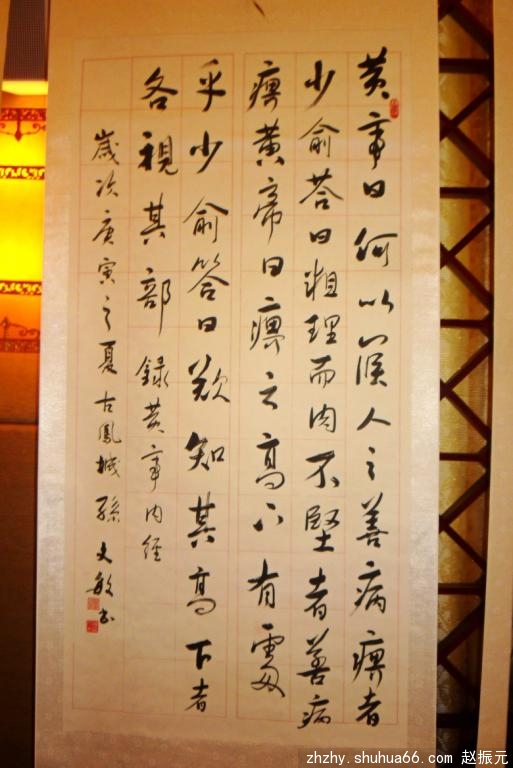 黄帝曰何以候人之善病痹者
少俞荅曰粗理而肉不堅者善病
痹黄帝曰痹之高下有處
乎少俞答曰欲知其高下者
各視其部錄黄帝内經
歲次庚寅之夏古鳳城孫文敏书
zhzhy.shuhua66.com 赵振元